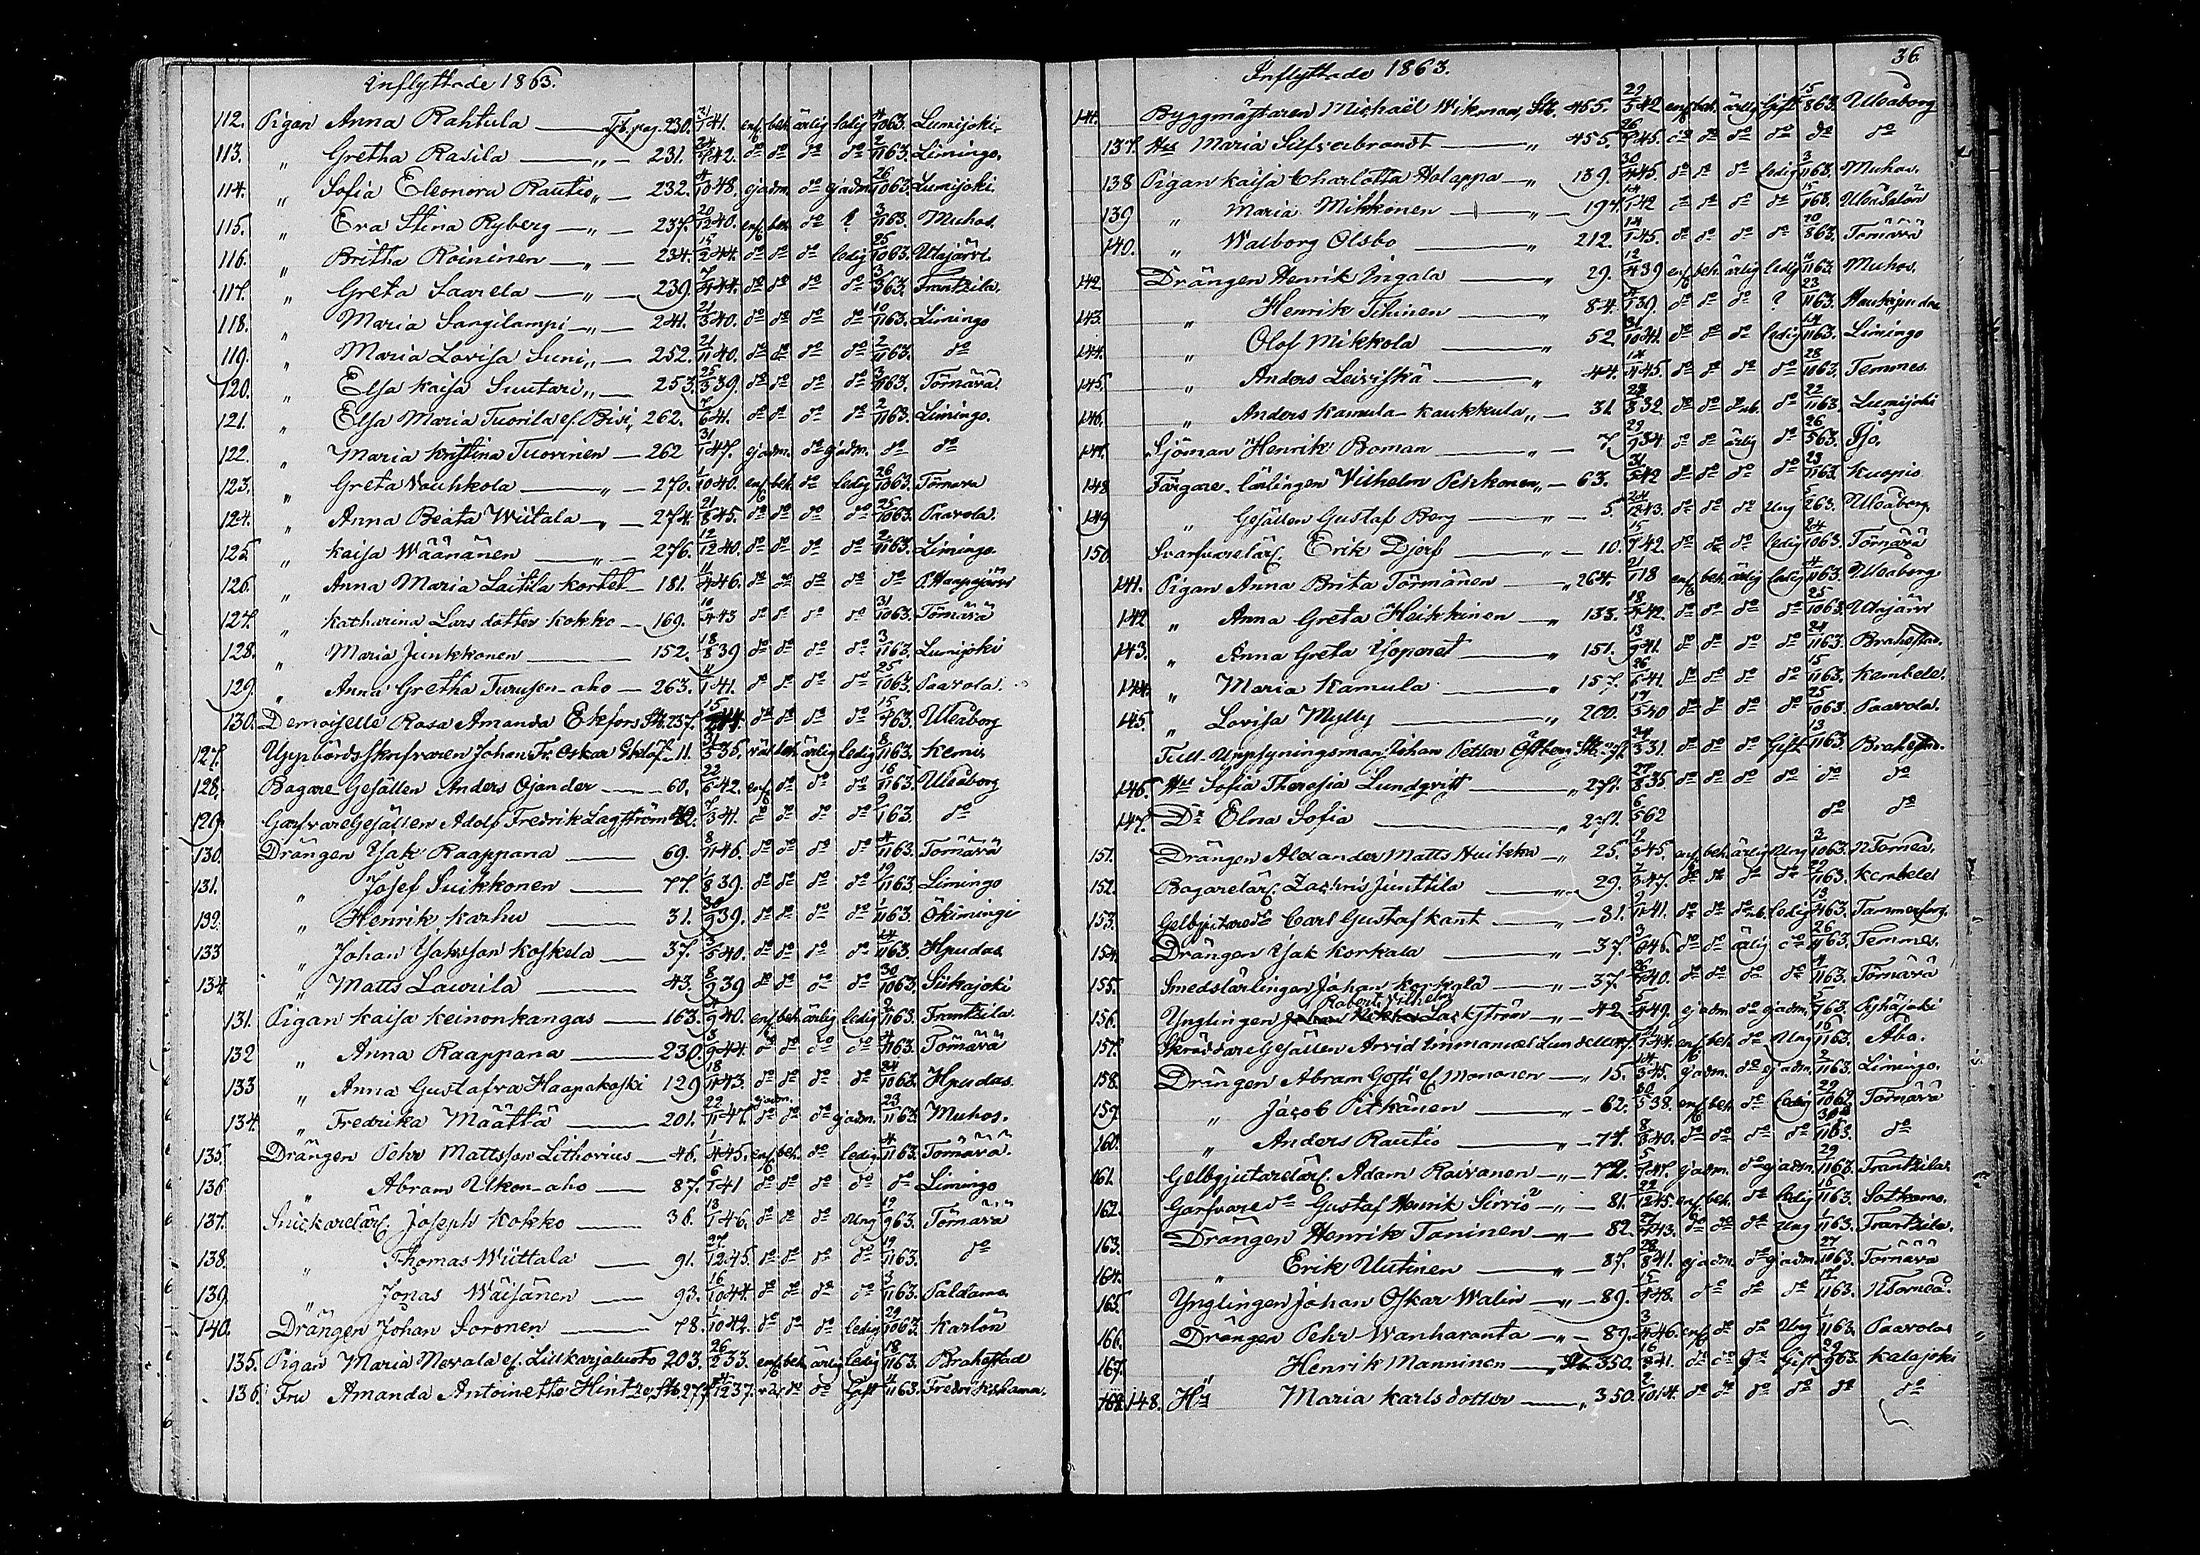 Inflyttade 1863.
112. Pigan Anna Rahtula 230. 41. enf. beh. ärlig ledig 1063. Lumijoki.
113. " Gretha Rasila " 231. 42. do do do do 1163. Limingo.
114. " Sofia Eleonora Rautio " 232. 1048. ej adm. do ej adm. 26/1063. Lumijoki.
115. " Eva Stina Ryberg " 237. 20/1240. enf. beh. do ? 3/1163. Muhos.
116. " Britha Roininen " 234. 15/244. do do do ledig 25/1063. Utajärvi.
117. " Greta Saarela " 239. 44. do do do do 3/363. Frantzila.
118. " Maria Sangilampi " 241. 21/340. do do do do 10/1163. Limingo
119. " Maria Lovisa Suni " 252. 21/1140. do do do do 2/1163. do
120. " Elsa Kaisa Suutari " 253. 25/339. do do do do 3/1163. Törnävä
121. " Elsa Maria Tuorila ef. Bisi " 262. 7/641. do do do do 2/1163. Limingo.
122. " Maria Kristina Tuorinen 262 31/147. ej adm. do ej adm. do do
123. " Greta Vauhkola " 270. 1/1040. enf. beh. do ledig 26/1063. Törnävä
124. " Anna Beata Wiitala " 274. 21/845. do do do do 25/1063. Paavola.
125 " Kaisa Wäänänen " 276. 12/1240. do do do do 2/1163. Limingo.
126. " Anna Maria Laitila Kortet 181. 446. do do do do do P.Haapajärvi
127. " Katharina Lars dotter Kokko 169. 10/443 do do do do 31/1063. Törnävä
128. " Maria Junkkonen 152. 18/839 do do do do 3/1163. Lumijoki
129. " Anna Gretha Turusen-aho 263. 141. do do do do 25/1063. Paavola.
130. Demoiselle Rosa Amanda Ekfors Stb. 237. 15/ 44. do do do do 15/ 63. Uleåborg
127. Uppbördsskrifvaren Johan Fr. Oskar 11. 31/335. väl beh. ärlig ledig 8/1163. Kemi.
128. Bagare Gesällen Anders Ojander 60. 22/642. enf. do do do 16/1163. Uleåborg
129. Garfvare Gesällen Adolf Fredrik Lagström 7/341. do do do do 9/163. do
130. Drängen Isak Raappana 69. 8/1146. do do do do 4/1163. Törnävä
131. " Josef Suikkonen 77. 1/839. do do do do 19/1163. Limingo
132. " Henrik Karhu 31. 30/939. do do do do 1/1163. Ökimingi
133 " Johan Isaksson Koskela 37. 3/540. do do do do 14/1163. Hpudas
134 " Matts Laurila 43. 8/939 do do do do 30/1063. Siikajoki
131. Pigan Kaisa Keinonkangas 163. 4/940. enf. beh. ärlig ledig 2/1163. Frantzila.
132 " Anna Raappana 230. 3/944. do do do do 4/1163. Törnävä
133 " Anna Gustafva Haapakoski 129 18/1143. do do do do 24/1063. Hpudas.
134. " Fredrika Määttä 201. 22/1147. ej adm. do do do ej adm. 23/1163. Muhos.
135. Drängen Pehr Mattsson Lithovius 46. 1/445. enf. beh. do ledig 4/1163. Törnävä.
136 " Abram Ukon-aho 87. 6/141 do do do do do Limingo
137. Snickarelärl. Joseph Kokko 36. 13/146. do do do Ung 12/963. Törnävä
138. " Thomas Wiittala 91. 27/1245. do do do do 19/1163. do
139. " Jonas Wäisänen 93. 16/1044 do do do do 3/1163. Paldamo.
140. Drängen Johan Soronen 78. 1/1042. do do do ledig 29/1063. Karlön
135. Pigan Maria Nevala ef. 203. 26/233. enf. beh. ärlig ledig 18/1163. Brahestad
136. Fru Amanda Antoinette Hintze, Stb. 277. 1237. väl do do Gift 4/1163. Fredrikshamn.
36.
Inflyttade 1863.
Byggmästaren Michaël Wikman, Stb. 455. 29/342 enf. beh. ärlig Gift 15/863. Uleåborg
137. Hs Maria Silfverbrandt " 455. 26/ 45. do do do do do do
138 Pigan Kaisa Charlotta Holappa " 139. 30/445. do do do ledig 3/1163. Muhos.
139 " Maria Mikkonen " 197. 14/142 do do do do 15/1163. Uleåsalon
140. " Walborg Olsbo " 212. 14/145. do do do do 20/863. Törnävä
142 Drängen Henrik Ingala " 29. 12/439 enf. beh. ärlig ledig 10/1163. Muhos.
143. " Henrik Tihinen " 84. 4/139. do do do ? 23/1163. Haukipudas
144. " Olof Mikkola " 52 31/1041. do do do ledig 14/1163. Limingo
145. " Anders Leiviskä " 44. 14/445. do do do do 28/1163. Temmes.
146. " Anders Kamula Kaukkula " 31. 332. do do do 22/1163. Lumijoki
147. Sjöman Henrik Boman " 7. 29/934. do do ärlig do 26/563. Ijo.
148 Färgare-lärlingen Vilhelm Pekkonen " 63. 31/342 do do do do 23/1163. Kuopio
149 " Gesällen Gustaf Berg " 5. 24/1243. do do do Ung 5/263. Uleåborg.
150. Svarfvarelärl. Erik Djerf " 10. 15/742. do do do ledig 24/1063. Törnävä
141. Pigan Anna Brita Törmänen " 264. 21/118 enf. beh. ärlig ledig 4/1163. Uleåborg
142 " Anna Greta Heikkinen " 133. 18/442. do do do do 25/1063. Utajärvi
143. " Anna Greta Yoponet " 151. 13/941. do do do do 24/1163. Brahestad.
144. " Maria Kamula " 157. 26/641. do do do do 15/1163. Kembele.
145. " Lovisa Mylly " 200. 17/540 do do do do 25/1063. Paavola.
Tull-Uppsyningsman Johan Petter Östberg Stb. 271. 24/331. do do do Gift 13/1163. Brahestad.
146. Hs Sofia Theresia Lundqvist " 271. 27/835. do do do do do do
147. Dr Elna Sofia " 271. 6/562 do do
151. Drängen Alexander Matts Huikka " 25. 9/645. enf. beh. ärlig Ung 3/1063. NTorneå.
152. Bagarelärl. Zachris Junttila " 29. 2/347. do do do do 29/1163. Kembele
153. Gelbgjutare do Carl Gustaf Kant " 81. 9/1141. do do do ledig 13/463. Tammerfors.
154. Drängen Isak Korkala " 37. 3/646. do do ärlig do 26/1163. Temmes.
155. Smedslärlingen Johan " 37. 440. do do do do 4/1163. Törnävä
156. Ynglingen Robert Vilhelm Lackström " 42 449. ej adm. do ej adm. 5/963. Pyhäjoki
157. Skräddare Gesällen Arvid Immanuel 144. enf. beh. do Ung 16/1163. Åbo.
158. Drängen Abram Gösti ef. Mononen " 15. 14/345. ej adm. do ej adm. 2/1163. Limingo.
159. " Jacob Pitkänen " 62. 30/538. enf. beh. do ledig 29/1063 Törnävä
160. " Anders Rautio " 74. 8/340. do do do do 1163. do
161. Gelbgjutarelärl. Adam Raivanen " 72. 5/947. ej adm. do ej adm. 29/1163. Frantzila.
162. Garfvare do Gustaf Henrik Sirviö " 81. 22/1245. enf. beh. do ledig 16/1163. Sotkamo.
163. Drängen Henrik Taninen " 82. 443. do do do Ung 1/1163. Frantzila.
164. " Erik Uutinen " 87. 841. ej adm. do ej adm. 27/1063. Törnävä
165. Ynglingen Johan Oskar Walin " 89. 15/448. do do do 14/1163. NTorneå.
166. Drängen Pehr Wanharanta " 89. 3/446. enf. do do Ung 1/1163. Paavola
167. " Henrik Manninen Stb. 350. 16/841. do do do Gift 29/963. Kalajoki
148. Hs Maria Karlsdotter " 350. 2/1014. do do do do do do